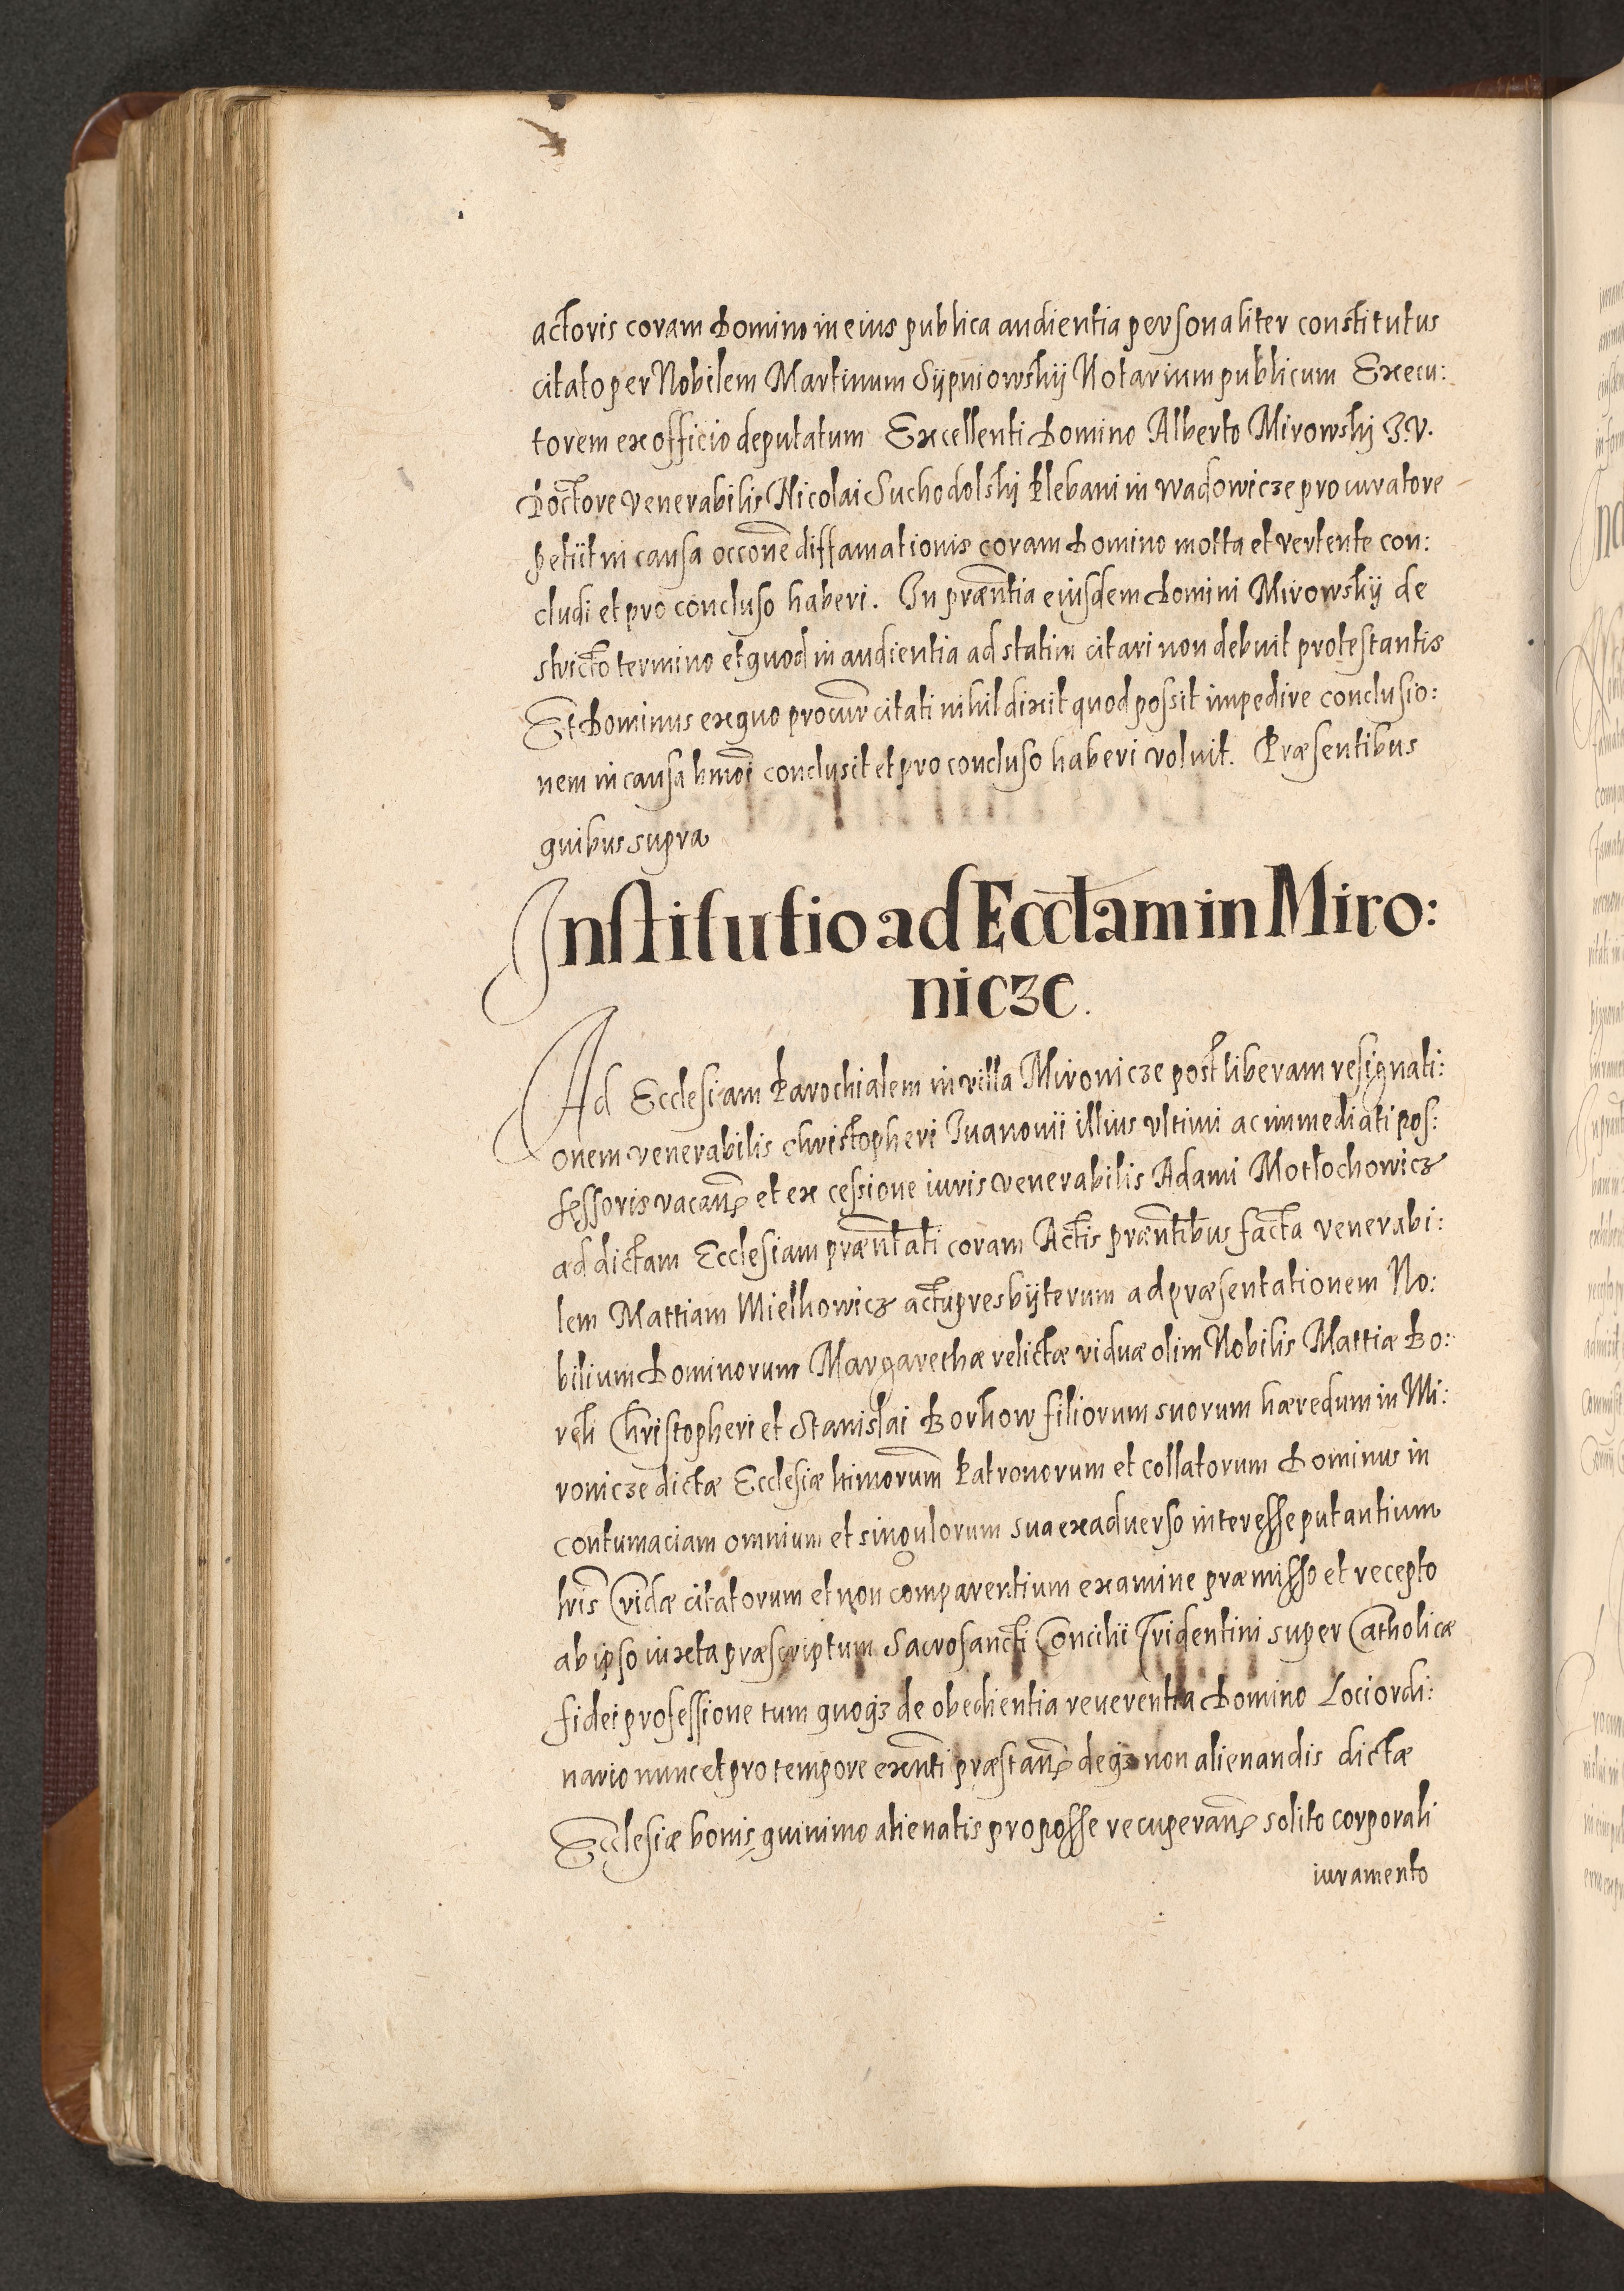 actoris coram Domino in eius publica audientia personaliter constitutus
citato per Nobilem Martinum Sÿpniowskÿ Notarium publicum Execu:
torem ex officio deputatum Excellenti Domino Alberto Mirowskj J.V.
Doctore venerabilis Nicolai Suchodolskj Plebani in Wadowicze procuratore
petiit in causa occōne diffamationis coram Domino motta et vertente con:
cludi et pro concluso haberi. In præntia eiusdem Domini Mirowskÿ de
stricto termino et quod in audientia ad statim citari non debuit protestantis
Et Dominus ex quo procur citati nihil dixit quod possit impedire conclusio:
nem in causa hmōi conclusit et pro concluso haberi voluit. Præsentibus
quibus supra
Institutio ad Eccl̄am in Miro:
nicze.
Ad Ecclesiam Parochialem in villa Mironicze post liberam resignati:
onem venerabilis Christopheri Iuanouii illius vltimi ac immediati pos:
sessoris vacan̄ et ex cessione iuris venerabilis Adami Motłochowicz
ad dictam Ecclesiam præn̄tati coram Actis præn̄tibus facta venerabi:
lem Mattiam Mielkowicz actu presbÿterum ad præsentationem No:
bilium Dominorum Margarethæ relictæ viduæ olim Nobilis Mattiæ Bo:
rek Christopheri et Stanislai Borkow filiorum suorum hæredum in Mi:
ronicze dictæ Ecclesiæ ltimorum̄ Patronorum et collatorum Dominus in
contumaciam omnium et singulorum sua ex aduerso interesse putantium
lris̄ Cridæ citatorum et non comparentium examine præmisso et recepto
ab ipso iuxta præscriptum Sacrosancti Concilii Tridentini super Catholicæ
fidei professione tum quoqȝ de obedientia reuerentia Domino Loci ordi:
nario nunc et pro tempore exen̄ti præstan̄ deqȝ non alienandis dictæ
Ecclesiæ bonis, quinimo alienatis pro posse recuperan̄ solito corporali
iuramento